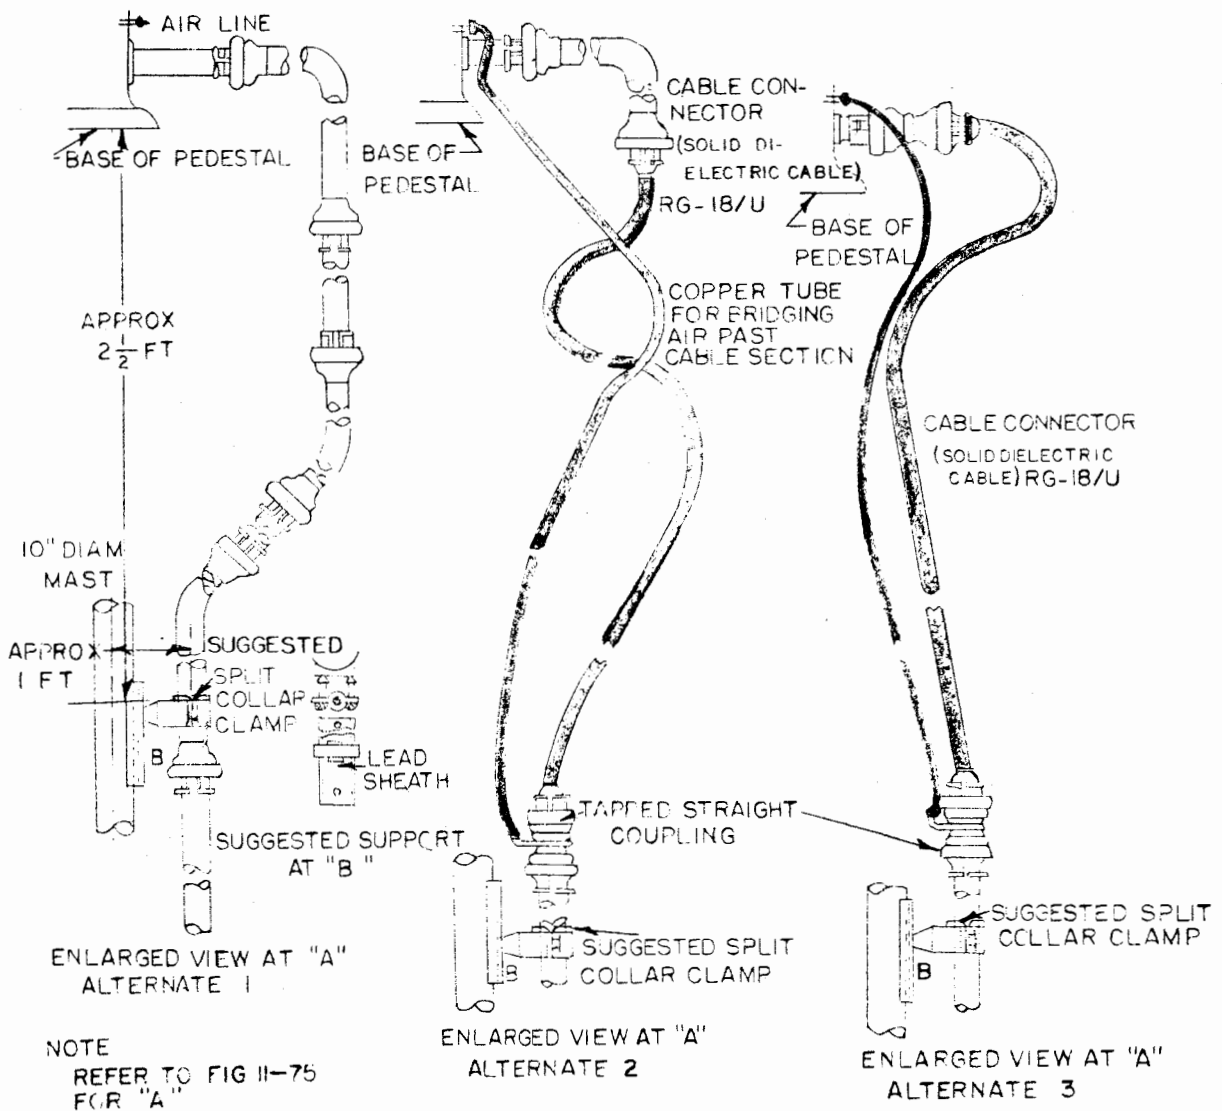 AIR LINE
BASE OF PEDESTAL
APPROX
2 1/2 FT
10" DIAM
MAST
APPROX
1 FT
SUGGESTED
SPLIT
COLLAR
CLAMP
B
LEAD
SHEATH
SUGGESTED SUPPORT
AT "B"
ENLARGED VIEW AT "A"
ALTERNATE 1
NOTE
REFER TO FIG 11-75
FOR "A"
BASE OF
PEDESTAL
CABLE CON-
NECTOR
(SOLID DI-
ELECTRIC CABLE)
RG-18/U
COPPER TUBE
FOR BRIDGING
AIR PAST
CABLE SECTION
TAPPED STRAIGHT
COUPLING
SUGGESTED SPLIT
COLLAR CLAMP
B
ENLARGED VIEW AT "A"
ALTERNATE 2
BASE OF
PEDESTAL
CABLE CONNECTOR
(SOLID DIELECTRIC
CABLE) RG-18/U
SUGGESTED SPLIT
COLLAR CLAMP
B
ENLARGED VIEW AT "A"
ALTERNATE 3